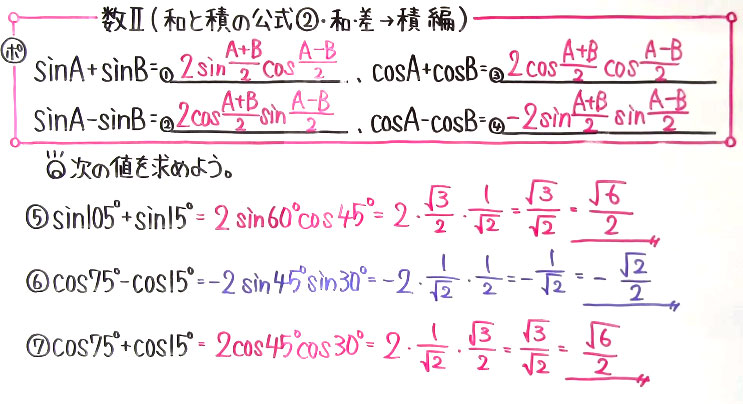 数Ⅱ(和と積の公式②・和・差→積 編)
㋭ sinA+sinB=①2sin\frac{A+B}{2}cos\frac{A-B}{2}、cosA+cosB=③2cos\frac{A+B}{2}cos\frac{A-B}{2}
sinA-sinB=②2cos\frac{A+B}{2}sin\frac{A-B}{2}、cosA-cosB=④-2sin\frac{A+B}{2}sin\frac{A-B}{2}
次の値を求めよう。
⑤sin105°+sin15°=2sin60°cos45°=2・\frac{√3}{2}・\frac{1}{√2}=\frac{√3}{√2}=\frac{√6}{2}
⑥cos75°-cos15°=-2sin45°sin30°=-2・\frac{1}{√2}・\frac{1}{2}=-\frac{1}{√2}=-\frac{√2}{2}
⑦cos75°+cos15°=2cos45°cos30°=2・\frac{1}{√2}・\frac{√3}{2}=\frac{√3}{√2}=\frac{√6}{2}